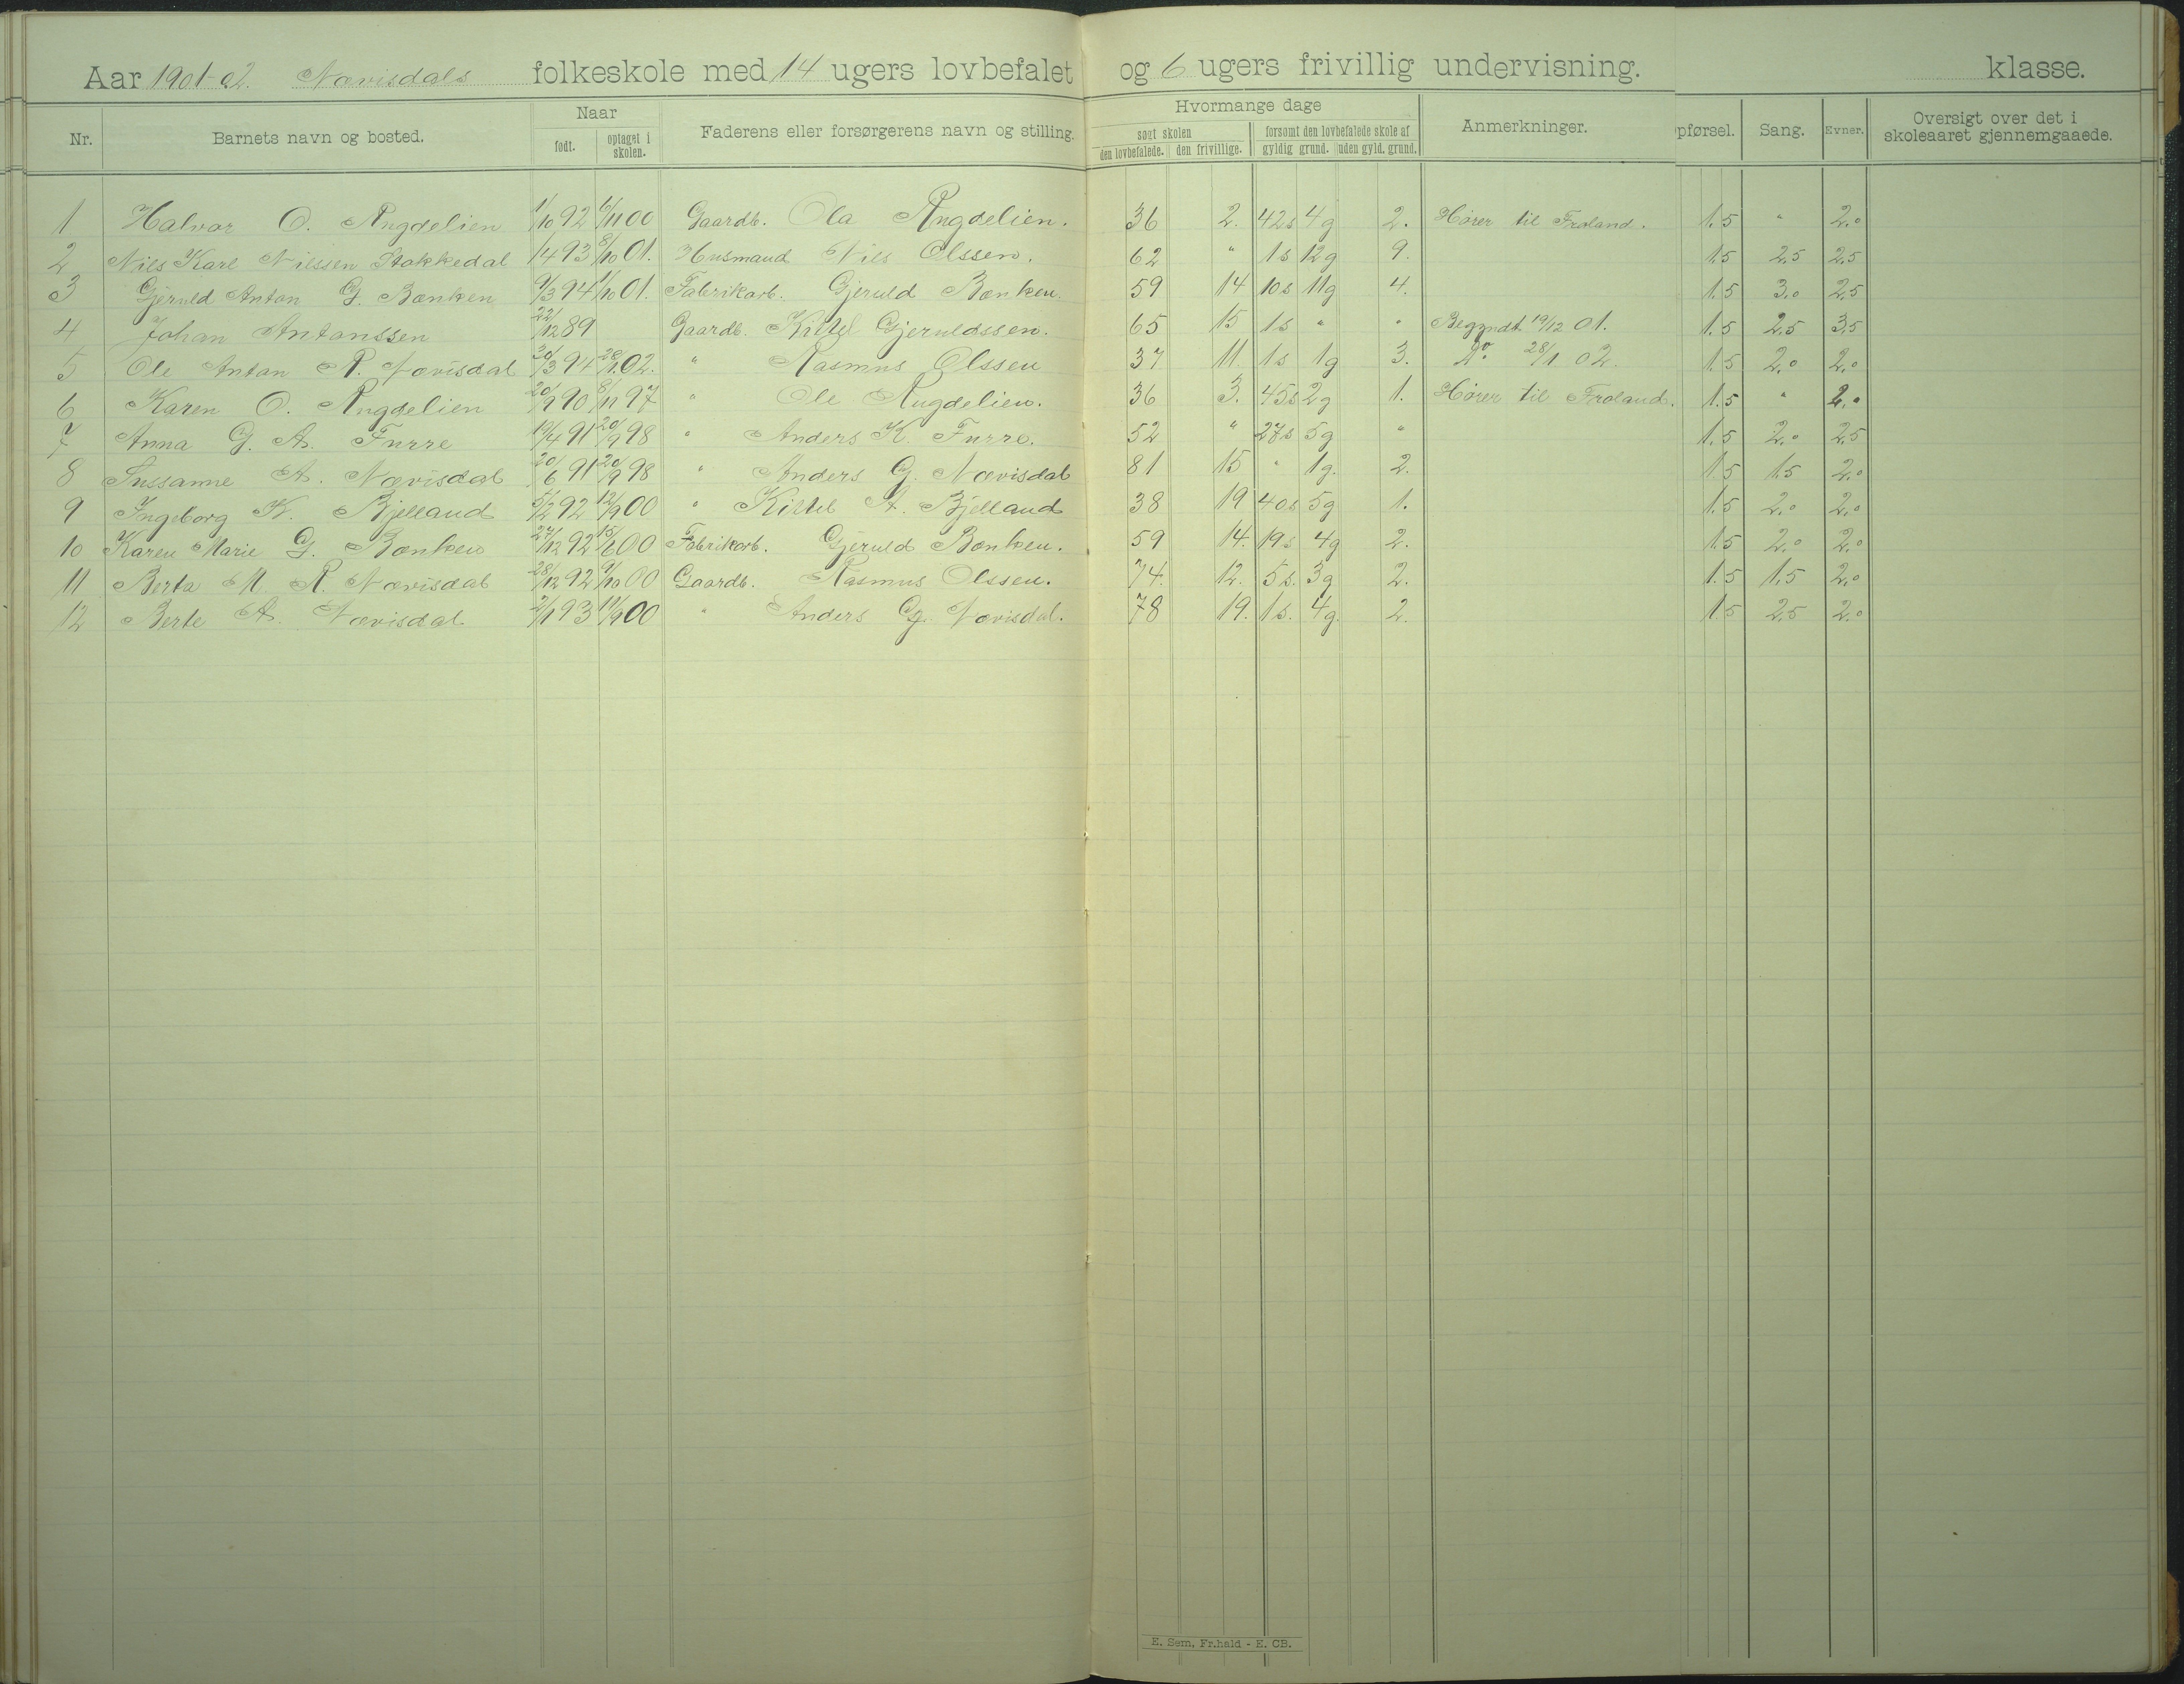 Aar 1901-02. Nævisdals folkeskole med 14 ugers lovbefalet og 6 ugers frivillig undervisning. klasse.
Nr. Barnets navn og bosted. Naar født. optaget i skolen. Faderens eller forsørgerens navn og stilling. Hvormange dage søgt skolen den lovbefalede. den frivillige. forsømt den lovbefalede skole af gyldig grund. uden gyld. grund. Anmerkninger. pførsel. Sang. Evner. Oversigt over det i skoleaaret gjennemgaaede.
1 Halvor O. Rugdelien 1/10 92 6/11 00 Gaardb. Ola Rugdelien. 36 2. 42s 4g 2. Hører til Froland. 1.5 " 2.0
2 Nils Karl Nilssen Stokkedal 1/4 93 8/10 01. Husmand Nils Olssen. 62 " 1s 12g 9. 1.5 2.5 2.5
3 Gjeruld Anton G. Bænken 9/3 94 1/10 01. Fabrikarb. Gjeruld Bænken. 59 14 10s 11g 4. 1.5 3.0 2.5
4 Johan Antonssen 22/12 89 Gaardb. Kittel Gjeruldssen. 65 15 1s " " Begyndt 19/12 01. 1.5 2.5 3.5
5 Ole Anton R. Nævisdal 30/3 94 28/1 02. " Rasmus Olssen 37 11. 1s 1g 3. Do 28/1 02. 1.5 2.0 2.0
6 Karen O. Rugdelien 20/9 90 8/11 97 " Ole Rugdelien. 36 3. 45s 2g 1. Hører til Froland. 1.5 " 2.0
7 Anna G. A. Furre 19/4 91 20/9 98 " Anders K. Furre. 52 " 27s 5g " 1.5 2.0 2.5
8 Sussanne A. Nævisdal 20/6 91 20/9 98 " Anders G. Nævisdal 81 15 " 1g. 2. 1.5 1.5 2.0
9 Ingeborg K. Bjelland 5/2 92 12/9 00 " Kittel A. Bjelland 38 19 40s 5g 1. 1.5 2.0 2.0
10 Karen Marie G. Bænken 27/12 92 15/6 00 Fabrikarb. Gjeruld Bænken. 59 14. 19s 4g 2. 1.5 2.0 2.0
11 Berta M. R. Nævisdal 28/12 92 9/10 00 Gaardb. Rasmus Olssen. 74. 12. 5s. 3g 2. 1.5 1.5 2.0
12 Berte A. Nævisdal 2/1 93 11/9 00 " Anders G. Nævisdal. 78 19. 1s. 4g. 2. 1.5 2.5 2.0
E. Sem, Fr.hald - E. CB.